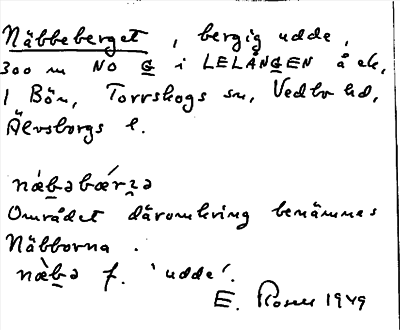 Näbbeberget, bergig udde,
300 m NO G i LELÅNGEN å ek,
1 Bön, Torrskogs sn, Vedbo hd,
Älvsborgs l.
Området däromkring benämnes
Näbborna.
f. 'udde'.
E. 1949